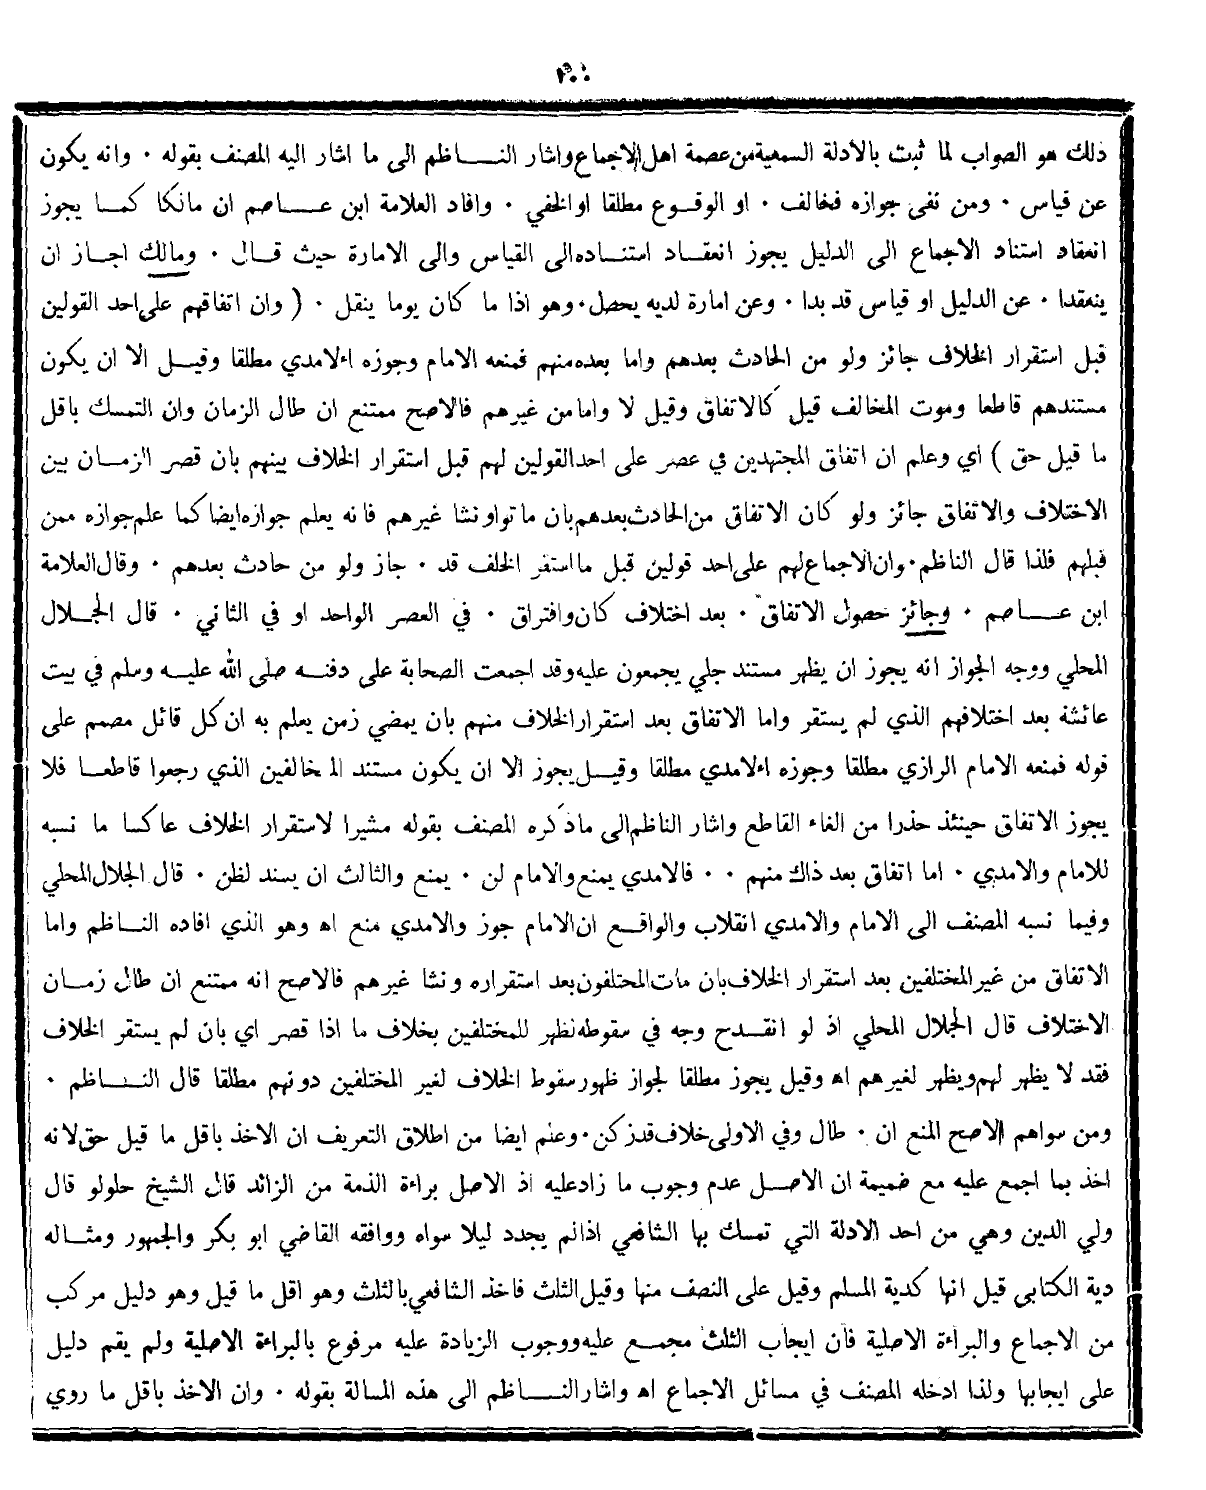 ذلك هو الصواب لما ثبت بالادلة السمعية من عصمة اهل الاجماع واشار النـــاظم الى ما اشار اليه المصنف بقوله • وانه يكون
عن قياس • ومن نفى جوازه فخالف • او الوقـوع مطلقا او الخفي • وافاد العلامة ابن عـــاصم ان مالكا كمـا يجوز
انعقاد استناد الاجماع الى الدليل يجوز انعقـاد استنـاده الى القياس والى الامارة حيث قـال • ومالك اجـاز ان
ينعقدا • عن الدليل او قياس قد بدا • وعن امارة لديه يحصل • وهو اذا ما كان يوما ينقل • ( وان اتفاقهم على احد القولين
قبل استقرار الخلاف جائز ولو من الحادث بعدهم واما بعده منهم فمنعه الامام وجوزه الامدي مطلقا وقيـل الا ان يكون
مستندهم قاطعا وموت المخالف قيل كالاتفاق وقيل لا واما من غيرهم فالاصح ممتنع ان طال الزمان وان التمسك باقل
ما قيل حق ) اي وعلم ان اتفاق المجتهدين في عصر على احد القولين لهم قبل استقرار الخلاف بينهم بان قصر الزمـان بين
الاختلاف والاتفاق جائز ولو كان الاتفاق من الحادث بعدهم بان ماتوا ونشا غيرهم فانه يعلم جوازه ايضا كما علم جوازه ممن
قبلهم فلذا قال الناظم • وان الاجماع لهم على احد قولين قبل ما استقر الخلف قد • جاز ولو من حادث بعدهم • وقال العلامة
ابن عـــاصم • وجائز حصول الاتفاق • بعد اختلاف كان وافتراق • في العصر الواحد او في الثاني • قال الجـلال
المحلي ووجه الجواز انه يجوز ان يظهر مستند جلي يجمعون عليه وقد اجمعت الصحابة على دفنـه صلى الله عليـه وسلم في بيت
عائشة بعد اختلافهم الذي لم يستقر واما الاتفاق بعد استقرار الخلاف منهم بان يمضي زمن يعلم به ان كل قائل مصمم على
قوله فمنعه الامام الرازي مطلقا وجوزه الامدي مطلقا وقيـل يجوز الا ان يكون مستند المخالفين الذي رجعوا قاطعـا فلا
يجوز الاتفاق حينئذ حذرا من الغاء القاطع واشار الناظم الى ما ذكره المصنف بقوله مشيرا لاستقرار الخلاف عاكسا ما نسبه
للامام والامدي • اما اتفاق بعد ذاك منهم • • فالامدي يمنع والامام لن • يمنع والثالث ان يسند لظن • قال الجلال المحلي
وفيما نسبه المصنف الى الامام والامدي انقلاب والواقـع ان الامام جوز والامدي منع اه وهو الذي افاده النـاظم واما
الاتفاق من غير المختلفين بعد استقرار الخلاف بان مات المختلفون بعد استقراره ونشا غيرهم فالاصح انه ممتنع ان طال زمـان
الاختلاف قال الجلال المحلي اذ لو انقـدح وجه في سقوطه لظهر للمختلفين بخلاف ما اذا قصر اي بان لم يستقر الخلاف
فقد لا يظهر لهم ويظهر لغيرهم اه وقيل يجوز مطلقا لجواز ظهور سقوط الخلاف لغير المختلفين دونهم مطلقا قال النـــاظم •
ومن سواهم الاصح المنع ان • طال وفي الاولى خلاف قد زكن • وعلم ايضا من اطلاق التعريف ان الاخذ باقل ما قيل حق لانه
اخذ بما اجمع عليه مع ضميمة ان الاصـل عدم وجوب ما زاد عليه اذ الاصل براءة الذمة من الزائد قال الشيخ حلولو قال
ولي الدين وهي من احد الادلة التي تمسك بها الشافعي اذا لم يجد دليلا سواه ووافقه القاضي ابو بكر والجمهور ومثـاله
دية الكتابي قيل انها كدية المسلم وقيل على النصف منها وقيل الثلث فاخذ الشافعي بالثلث وهو اقل ما قيل وهو دليل مركب
من الاجماع والبراءة الاصلية فان ايجاب الثلث مجمـع عليه ووجوب الزيادة عليه مرفوع بالبراءة الاصلية ولم يقم دليل
على ايجابها ولذا ادخله المصنف في مسائل الاجماع اه واشار النـــاظم الى هذه المسالة بقوله • وان الاخذ باقل ما روي